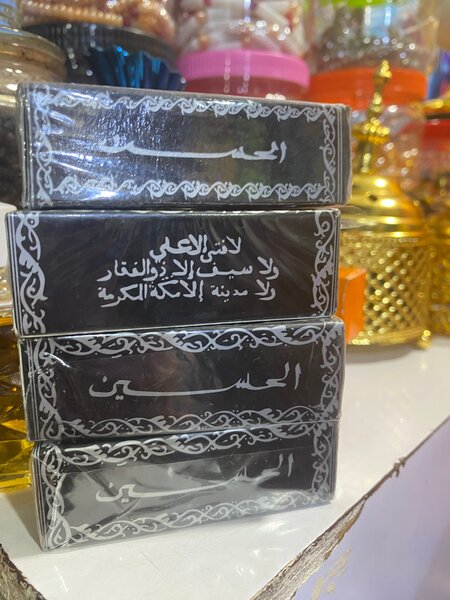 الحسين
لا فتى الا علي
ولا سيف إلا ذو الفقار
ولا مدينة إلا مكة المكرمة
الحسين
الحسين